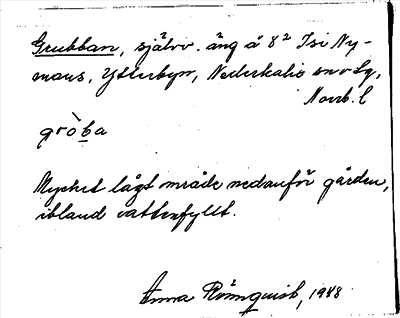 Grubban, självv. äng å 8² Isi Ny-
mans, Ytterbyn, Nederkalix snv Lg,
Norrb. l
gròba
Mycket lågt område nedanför gården,
ibland vattenfyllt.
Anna Rönnquist, 1948